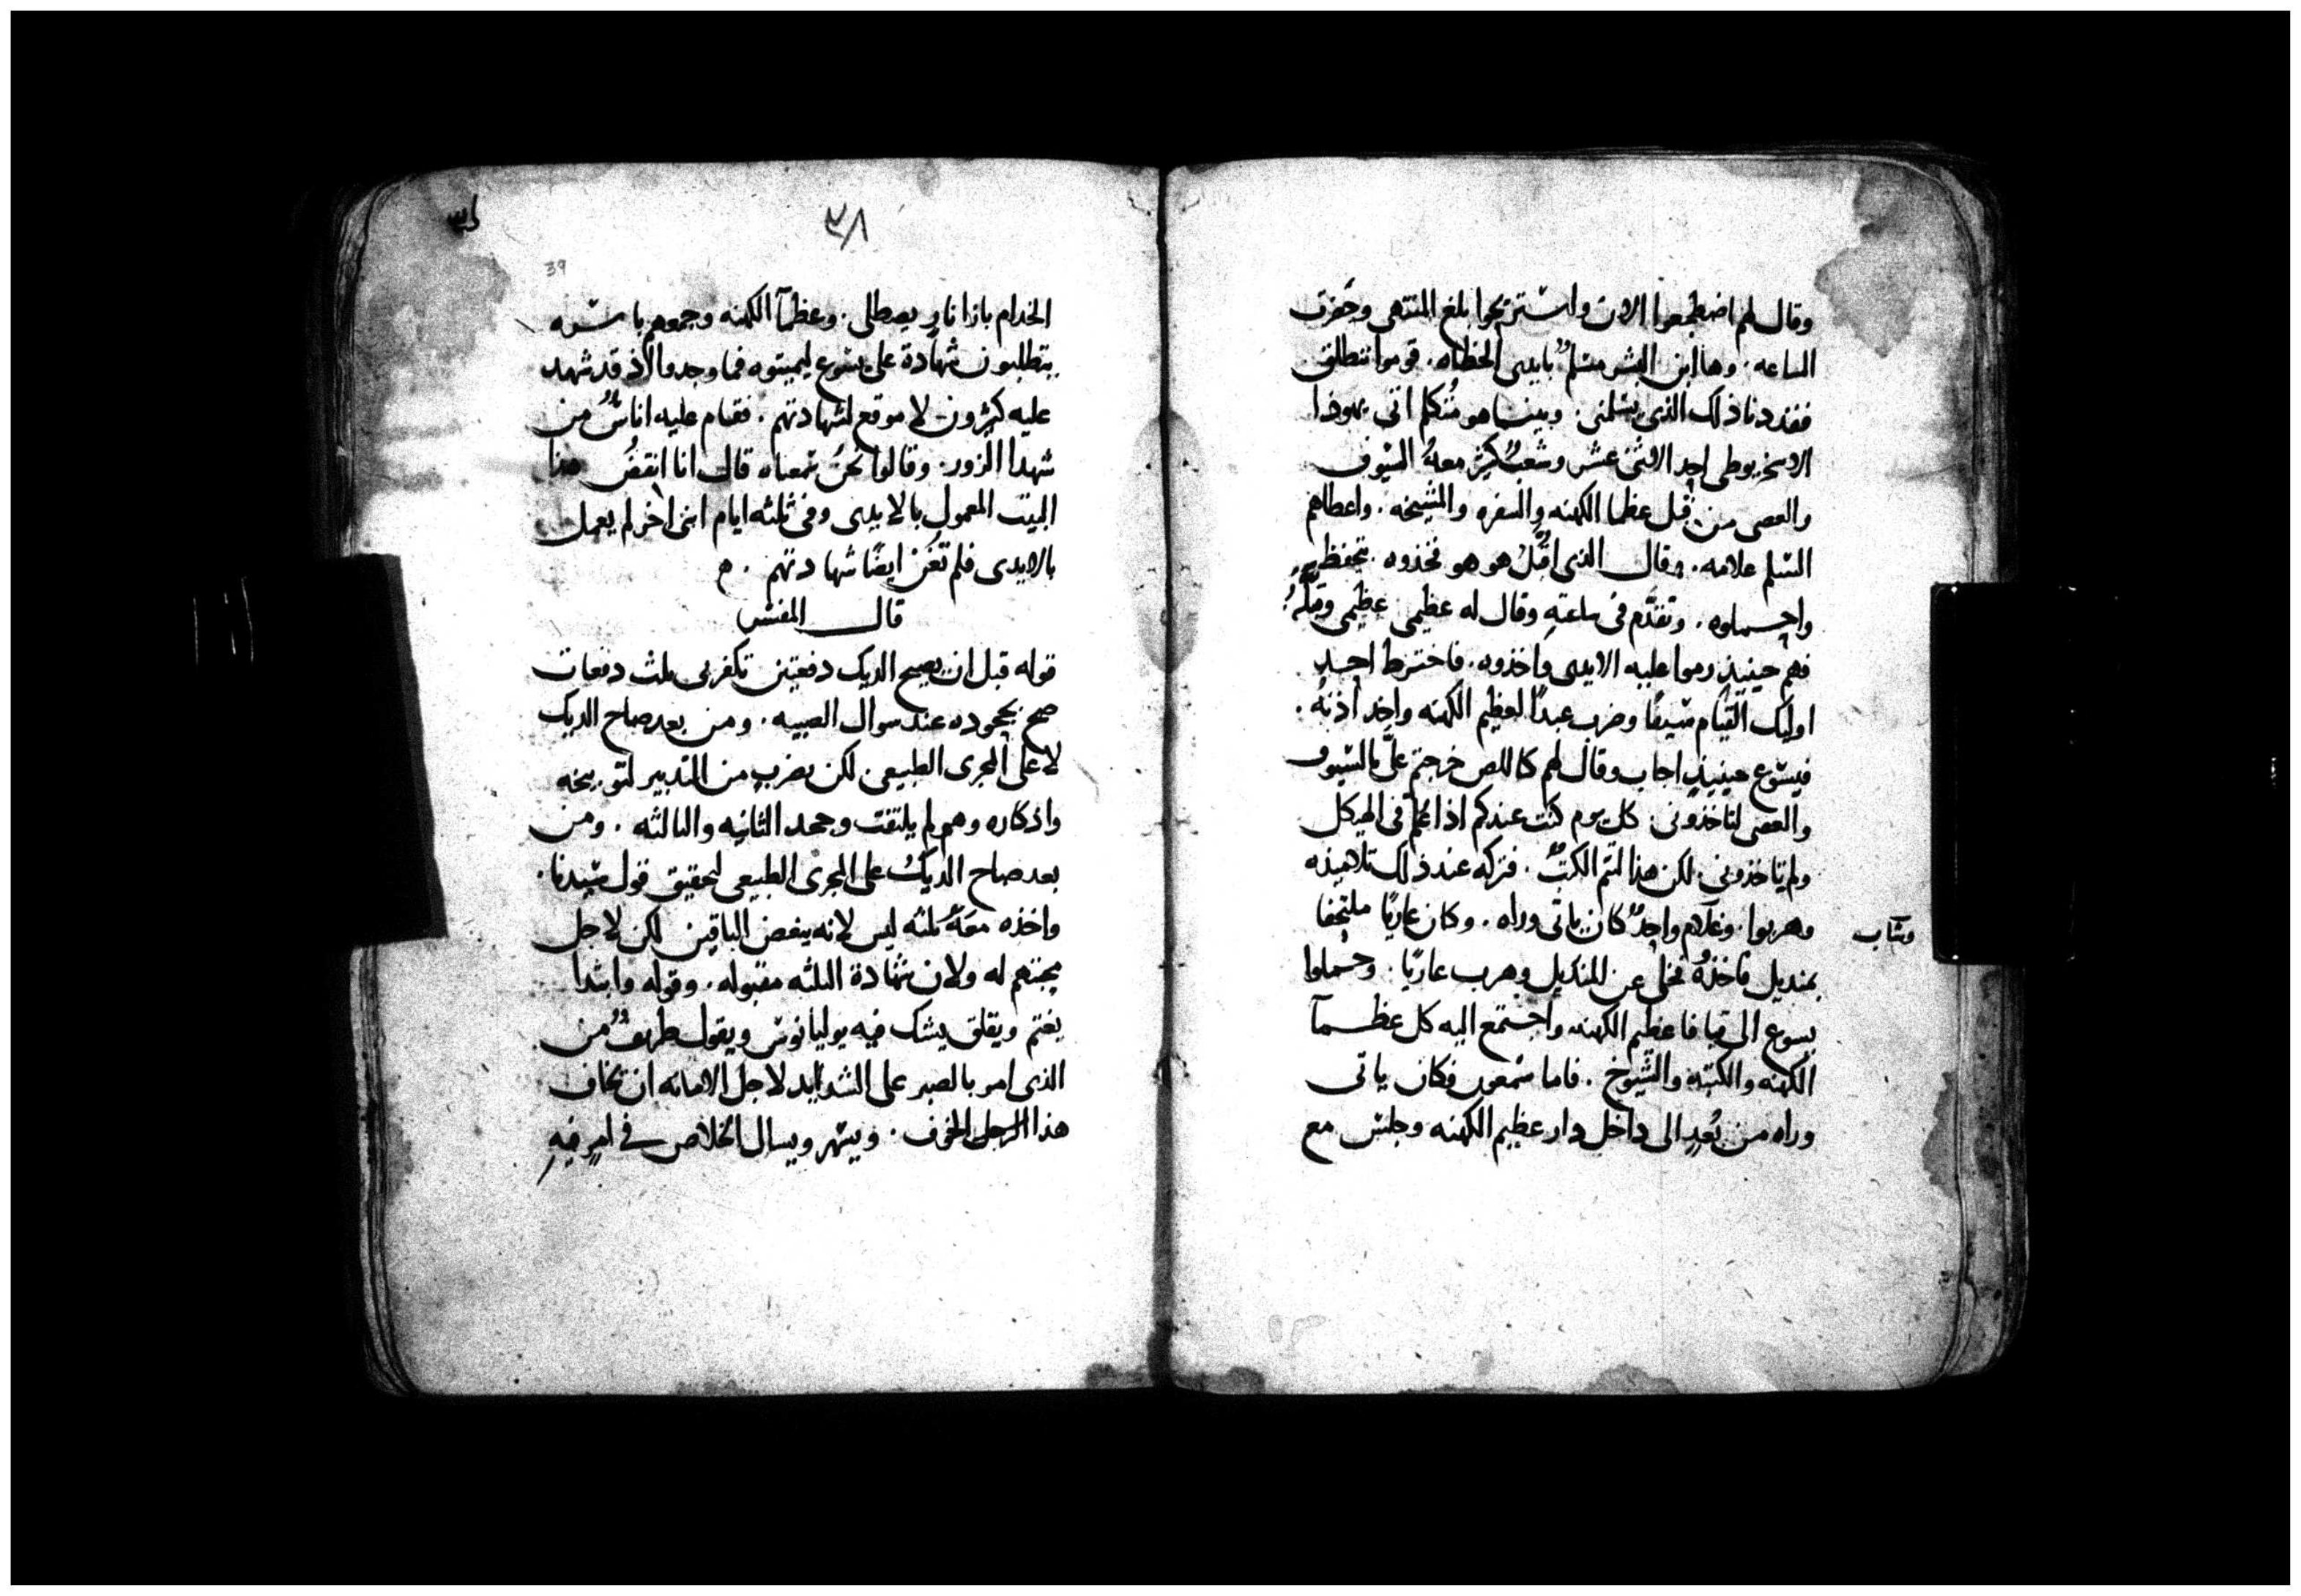 وقال لهم اضطجعوا الان واستريحوا بلغ المنتهى وحضرت
الساعه. وها ابن البشر مسلم بايدى الخطاه. قوموا ننطلق
فقد دنا ذلك الذى يسلمنى. وبينما هو متكلم اتى يهوذا
الاسخريوطى احد الاثنى عشر وشعب كثير معه السيوف
والعصى من قبل عظما الكهنه والسفره والمشيخه. واعطاهم
المسلم علامه. وقال الذى اقبل هو هو فخذوه. بتحفظ
واحملوه. وتقدم فى ساعته وقال له عظيمى عظيمى وقبله
فهم حينيذ رموا عليه الايدى واخذوه. فاخترط احد
اوليك القيام سيفا وضرب عبدا لعظيم الكهنه واخذ اذنه.
فيسوع حينيذ اجاب وقال لهم كاللص خرجتم على بالسيوف
والعصى لتاخذونى. كل يوم كنت عندكم اذ اعلم فى الهيكل
ولم تاخذونى. لكن هذا لتتم الكتب. فتركه عند ذلك تلاميذه
وهربوا. وغلام واحد كان ياتى وراه. وكان عاريا ملتحفا
وشاب
بمنديل فاخذه فخلى عن المنديل وهرب عاريا. وحملوا
يسوع الى قيافا عظيم الكهنه واجتمع اليه كل عظمآ
الكهنه والكتبه والشيوخ. فاما سمعون فكان ياتى
وراه من بعد الى داخل دار عظيم الكهنه وجلس مع
٣٨
39
الخدام بازا نار يصطلى. وعظمآ الكهنه وجمعهم باسره
يتطلبون شهادة على يسوع ليميتوه فما وجدوا اذ قد شهد
عليه كثرون لا موقع لشهادتهم. فقام عليه اناس من
شهدا الزور. وقالوا نحن سمعناه قال انا انقض هذا
البيت المعمول بالايدى وفى ثلثه ايام ابنى اخر لم يعمل
بالايدى فلم تغن ايضا شهادتهم. م
قال المفسر
قوله قبل ان يصيح الديك دفعتين تكفر بى ثلث دفعات
صح بجحوده عند سوال الصبيه. ومن بعد صياح الديك
لا على المجرى الطبيعى لكن بضرب من التدبير لتوبيخه
واذكاره وهو لم يلتفت وجحد الثانيه والثالثه. ومن
بعد صياح الديك على المجرى الطبيعى لتحقيق قول سيدنا.
واخذه معه ثلثه ليس لانه يبغض الباقين لكن لاجل
محبتهم له ولان شهادة الثلثه مقبوله. وقوله وابتدا
يغتم ويقلق يشك فيه يوليانوس ويقول طريف من
الذى امر بالصبر على الشدايد لاجل الامانه ان يخاف
هذا الرجل الخوف. ويسهر ويسال الخلاص فى امر فيه